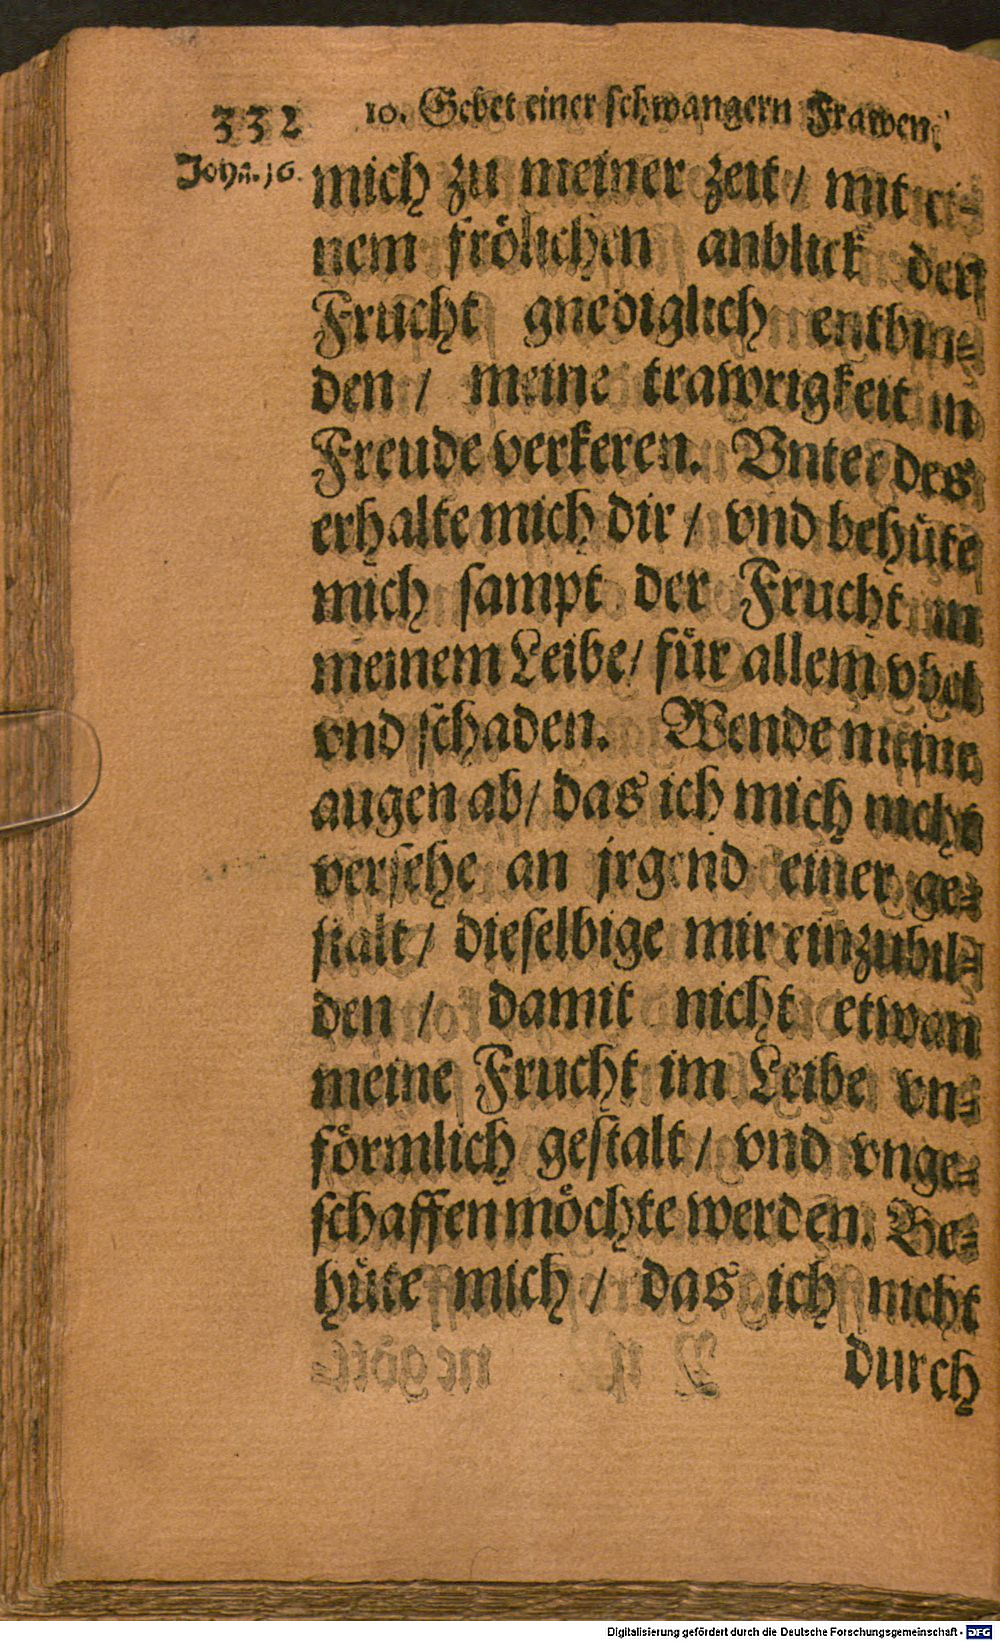 332 10. Gebet einer schwangern Frawen.
Johan. 16.
mich zu meiner zeit / mit ei⸗
nem frölichen anblick der
Frucht gnediglich entbin⸗
den / meine trawrigkeit in
Freude verkeren. Vnter des
erhalte mich dir / vnd behüte
mich sampt der Frucht in
meinem Leibe / für allem vbel
vnd schaden. Wende meine
augen ab / das ich mich nicht
versehe an jrgend einer ge⸗
stalt / dieselbige mir einzubil⸗
den / damit nicht etwan
meine Frucht im Leibe vn⸗
förmlich gestalt / vnd vnge⸗
schaffen möchte werden. Be⸗
hüte mich / das ich nicht
durch
Digitalisierung gefördert durch die Deutsche Forschungsgemeinschaft - DFG